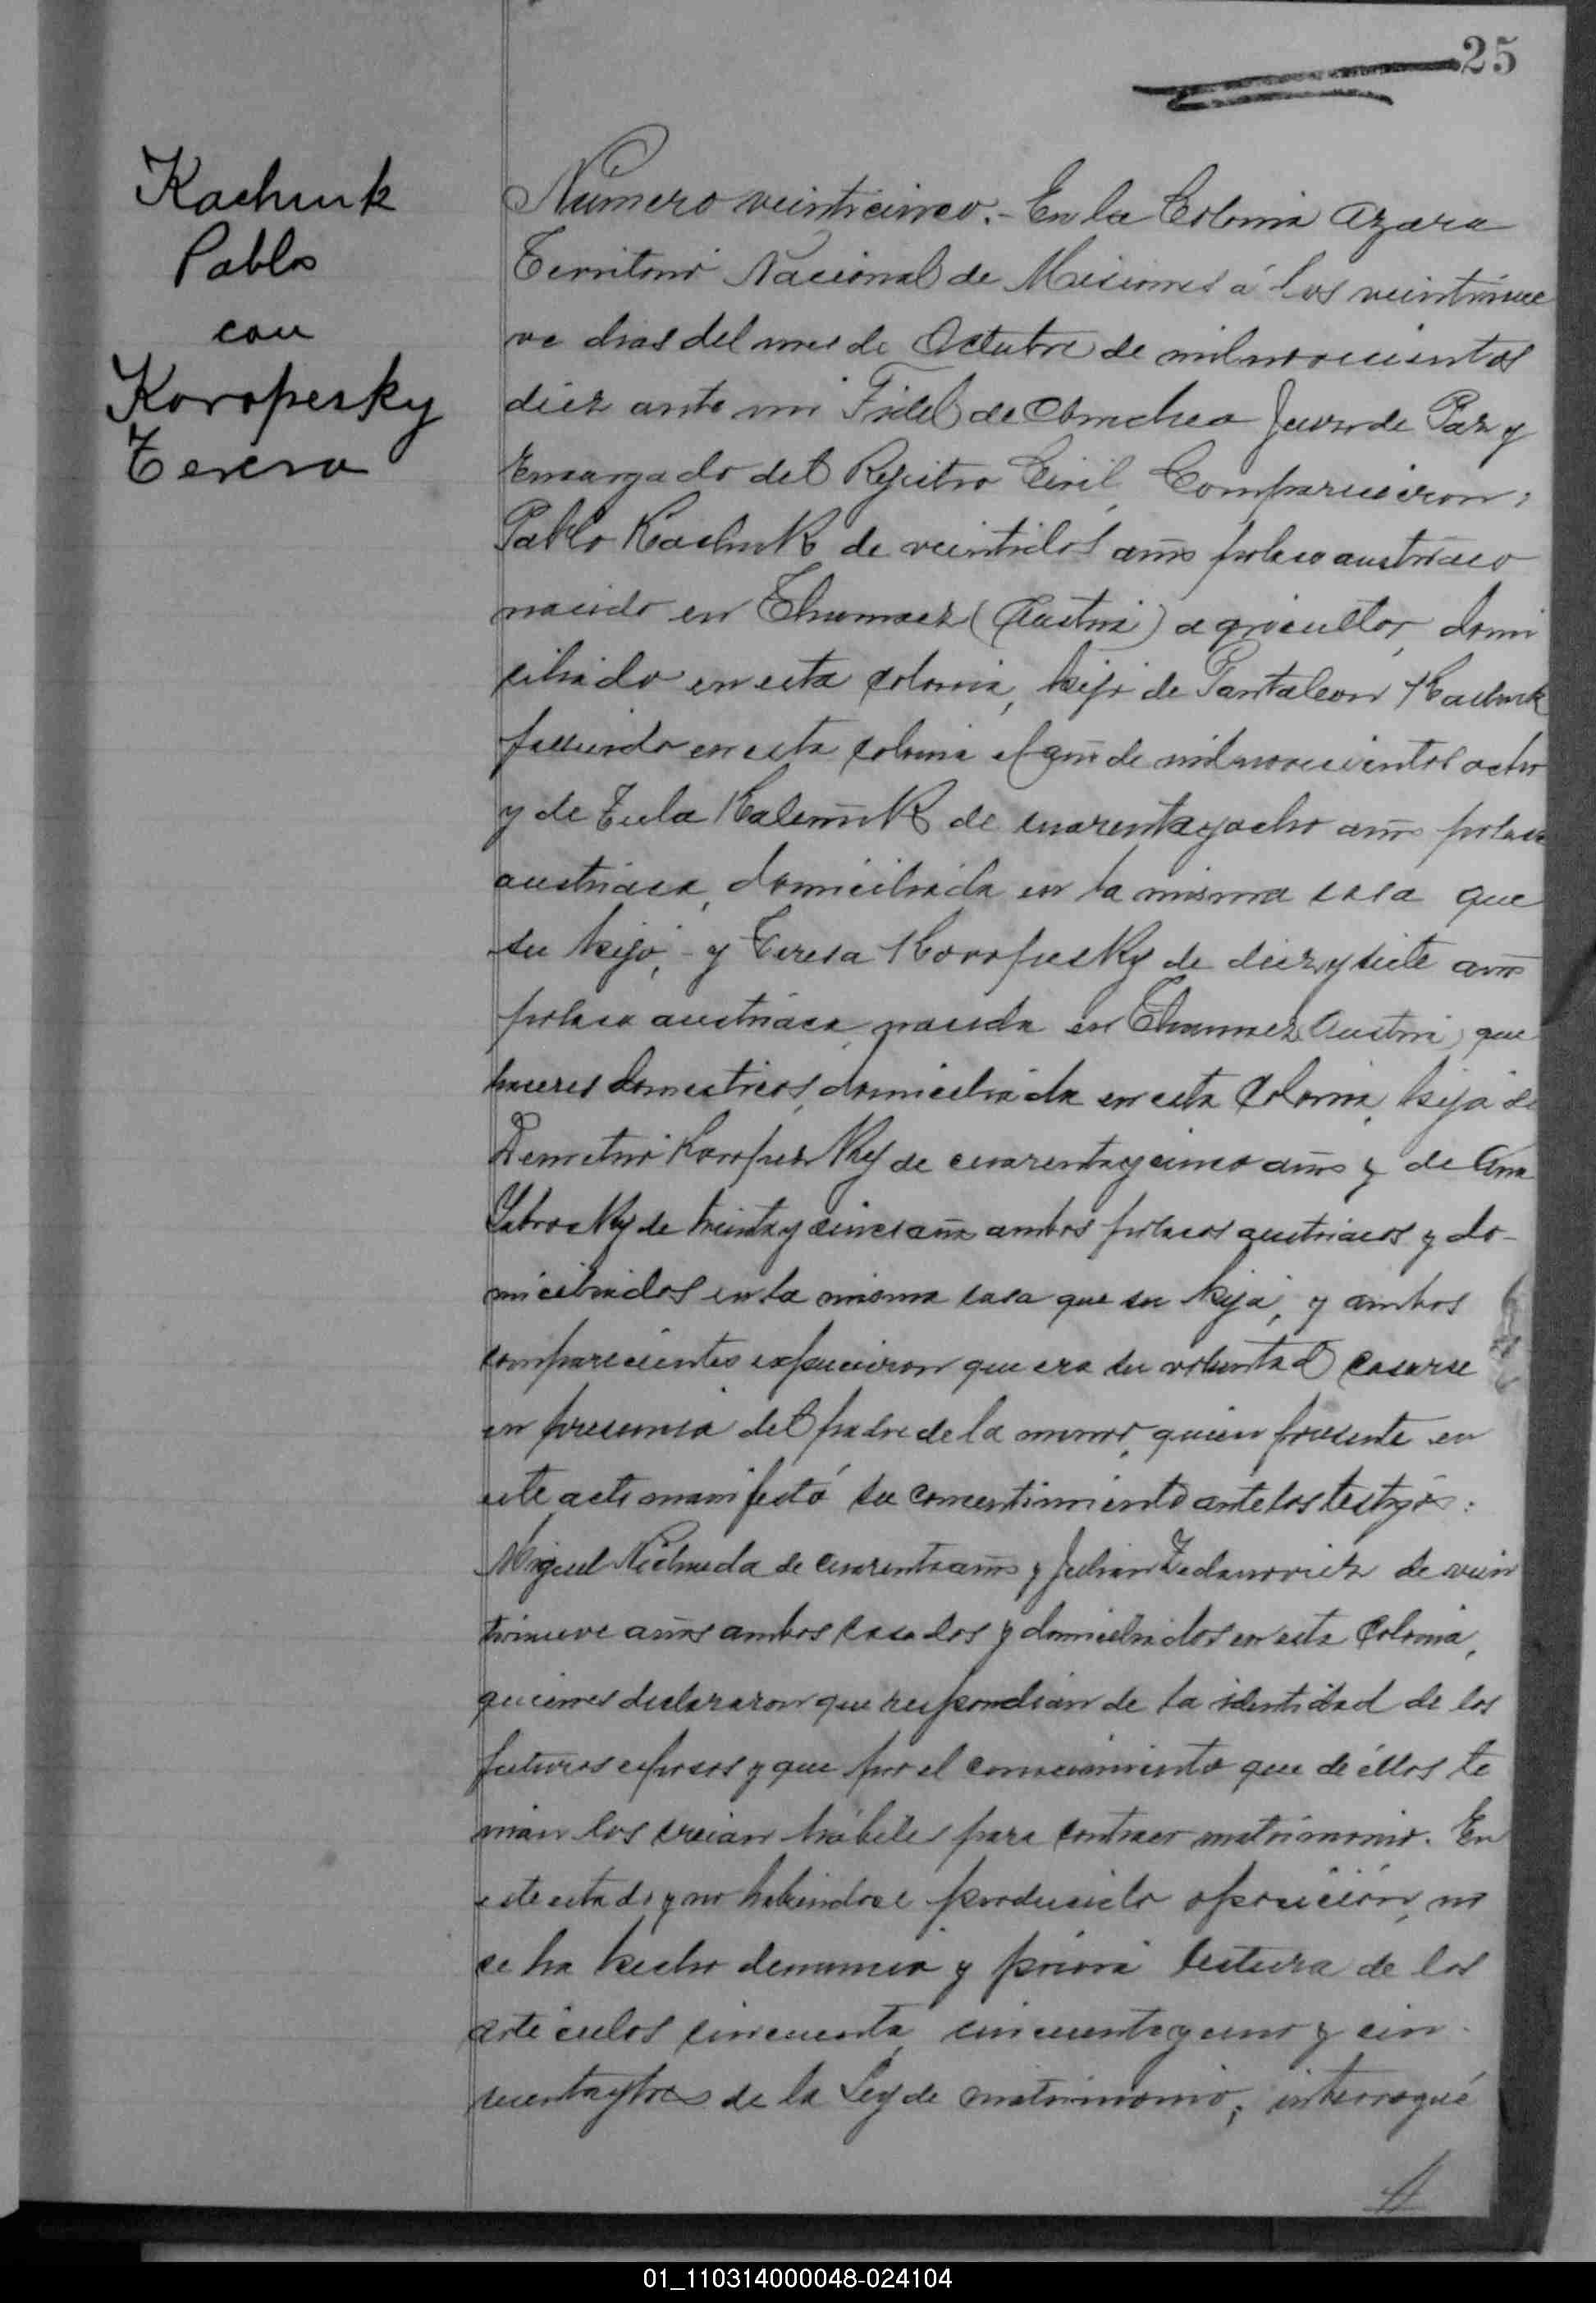 25
Kachuk
Pablo
con
Koropesky
Teresa
Número veinticinco.- En la Colonia Azara
Territorio Nacional de Misiones á los veintinue
ve dias del mes de Octubre de mil novecientos
diez ante mi Fidel de Juez de Paz y
Encargado del Registro Civil, Comparecieron:
Pablo Kachuk de veintidos años polaco austriaco
nacido en (Austria) agricultor, domi
ciliado en esta colonia, hijo de Pantaleon Kachuk
fallecido en esta colonia el año de mil novecientos ocho
y de Tecla de cuarenta y ocho años polaca
austriaca, domiciliada en la misma casa que
su hijo; - y Teresa Koropesky de diez y siete años
polaca austriaca nacida en Austria, que
haceres domesticos, domiciliada en esta Colonia, hija de
Demetrio Koropesky de cuarenta y cinco años y de Ana
de treinta y cinco años ambos polacos austriacos y do-
miciliados en la misma casa que su hija, y ambos
comparecientes expusieron que era su voluntad casarse
en presencia del padre de la menor, quien presente en
este acto manifestó su consentimiento ante los testigos:
Miguel de cuarenta años y Julian de vein
tinueve años ambos casados y domiciliados en esta Colonia,
quienes declararon que respondian de la identidad de los
futuros esposos y que por el conocimiento que de éllos te
nian los creian hábiles para contraer matrimonio. En
este estado, y no habiendose producido oposición, no
se ha hecho denuncia y previa lectura de los
articulos cincuenta, cincuenta y uno y cin-
cuenta y tres de la Ley de matrimonio, interrogué
01_110314000048-024104